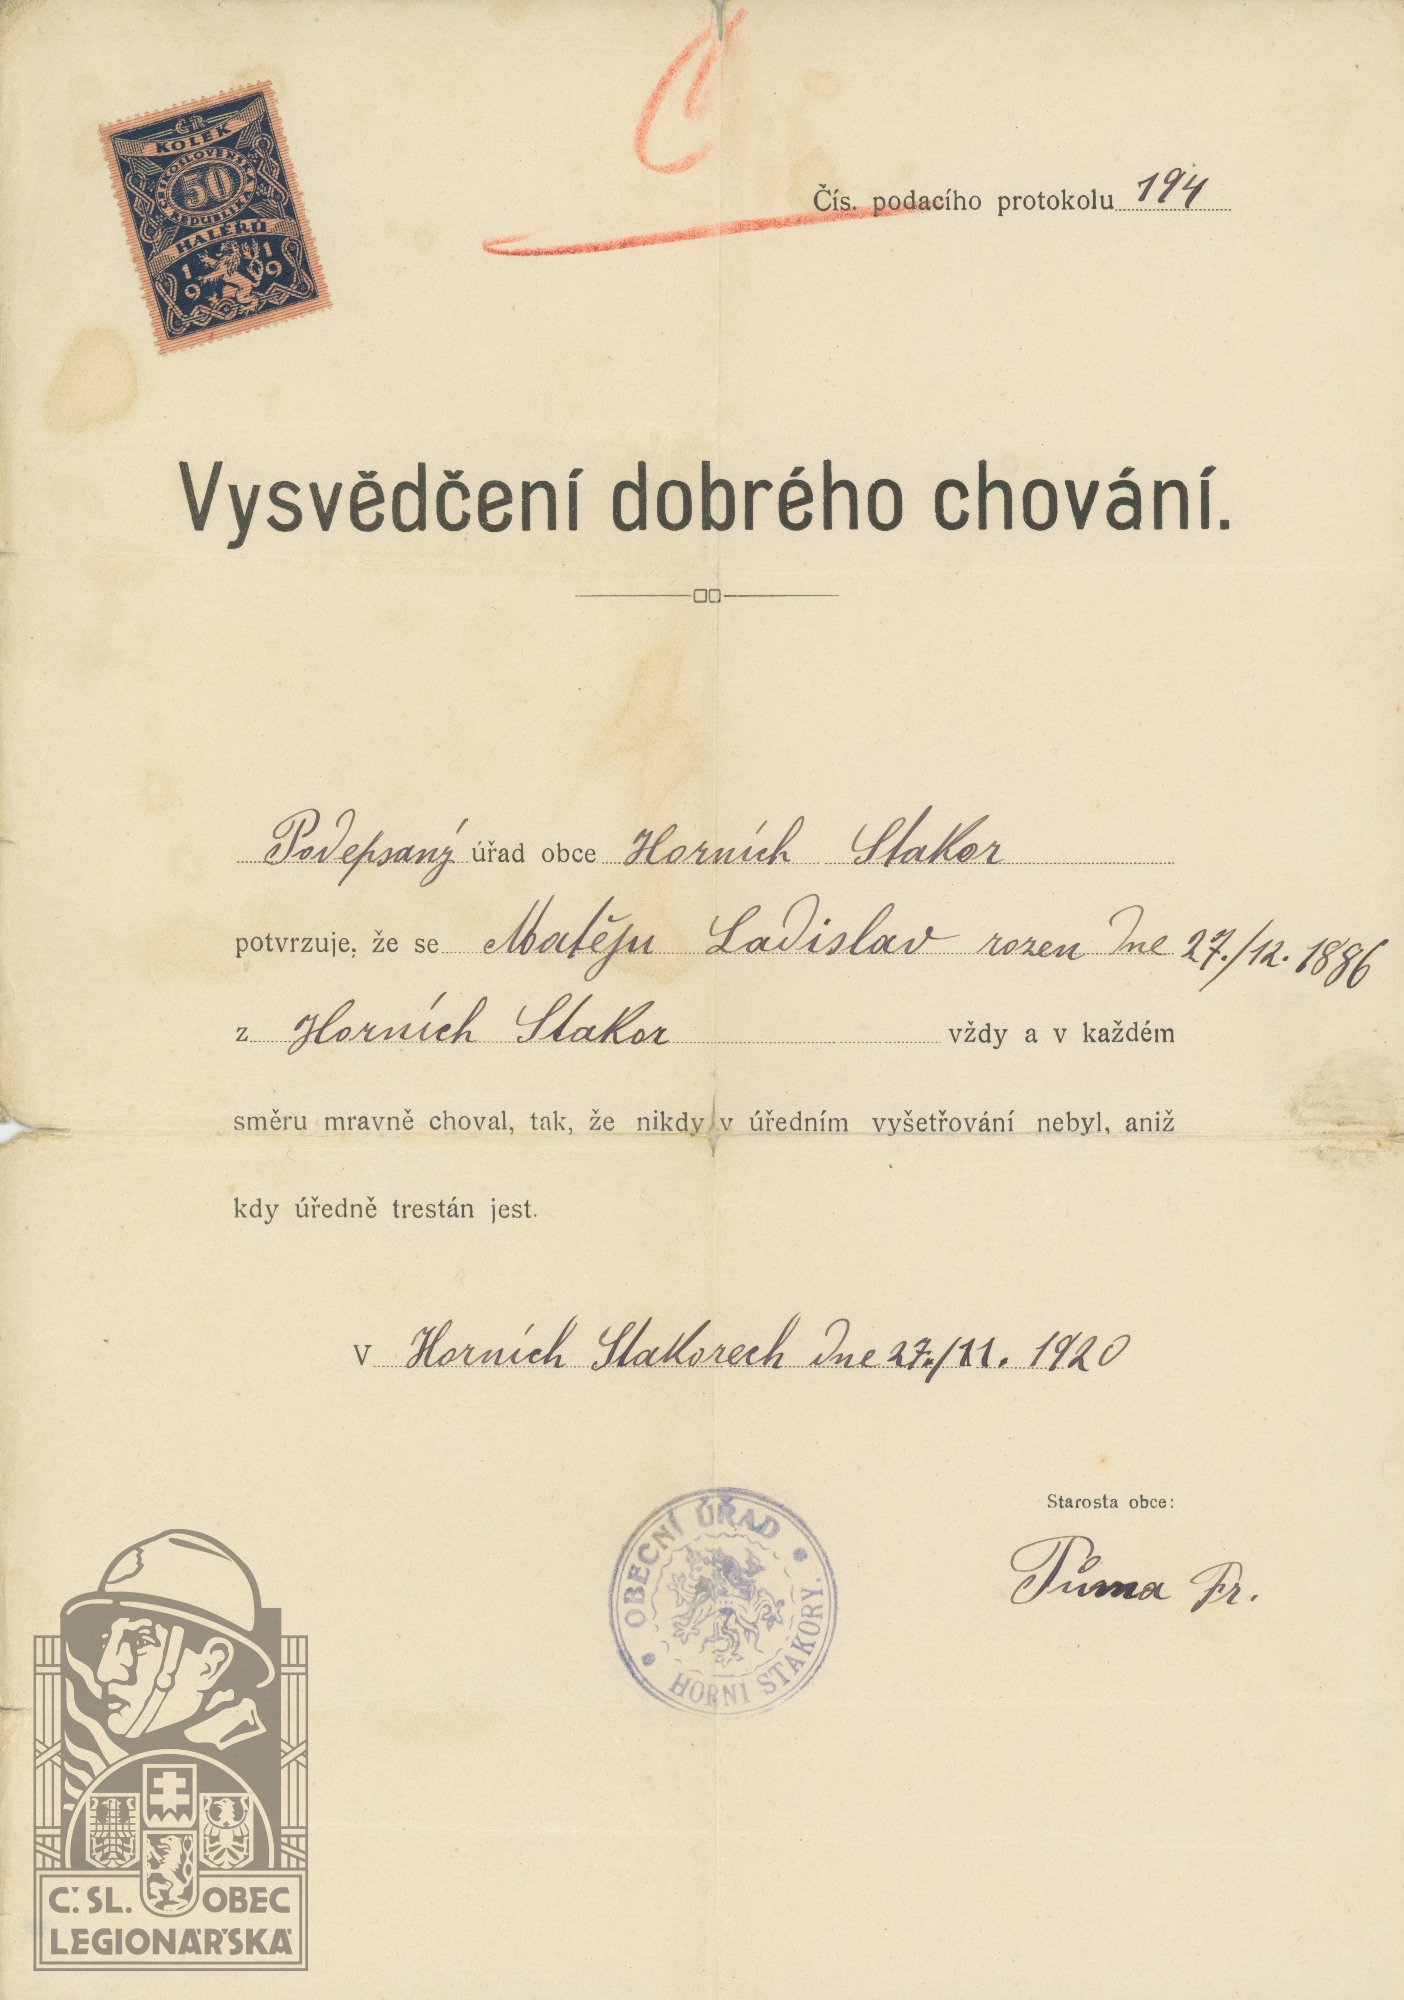 Č
Čís. podacího protokolu 194
ČR
KOLEK
ČESKOSLOVENSKÁ
50
REPUBLIKA
HALÉŘŮ
1919
Vysvědčení dobrého chování.
Podepsaný úřad obce Horních Stakor
potvrzuje, že se Matěju Ladislav rozen dne 27./12. 1886
z Horních Stakor vždy a v každém
směru mravně choval, tak, že nikdy v úředním vyšetřování nebyl, aniž
kdy úředně trestán jest.
V Horních Stakorech dne 27./11. 1920
Starosta obce:
Tůma Fr.
OBECNÍ ÚŘAD
HORNÍ STAKORY.
Č. SL. OBEC
LEGIONÁŘSKÁ